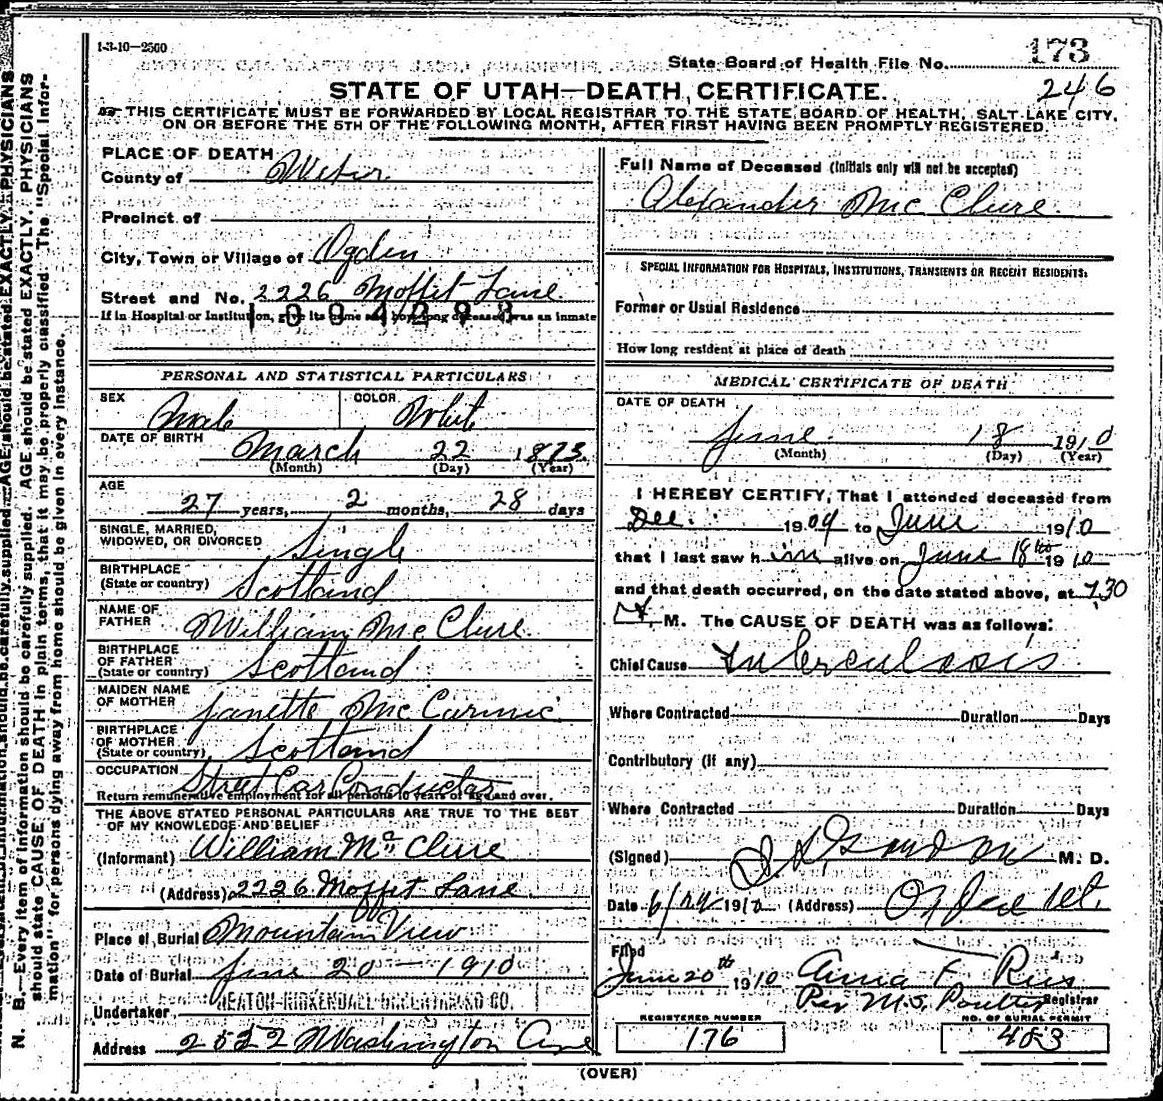 1-3-10-2500
State Board of Health File No. 173
246
STATE OF UTAH—DEATH CERTIFICATE.
THIS CERTIFICATE MUST BE FORWARDED BY LOCAL REGISTRAR TO THE STATE BOARD OF HEALTH, SALT LAKE CITY,
ON OR BEFORE THE 5TH OF THE FOLLOWING MONTH, AFTER FIRST HAVING BEEN PROMPTLY REGISTERED.
N. B.—Every item of information should be carefully supplied. AGE should be stated EXACTLY. PHYSICIANS
should state CAUSE OF DEATH in plain terms, that it may be properly classified. The "Special Infor-
mation" for persons dying away from home should be given in every instance.
PLACE OF DEATH
County of Weber
Precinct of
City, Town or Village of Ogden
Street and No. 2226 Moffit Lane
If in Hospital or Institution, give its name and how long deceased was an inmate
PERSONAL AND STATISTICAL PARTICULARS
SEX Male COLOR White
DATE OF BIRTH March 22 1873
(Month) (Day) (Year)
AGE
27 years, 2 months, 28 days
SINGLE, MARRIED,
WIDOWED, OR DIVORCED Single
BIRTHPLACE
(State or country) Scotland
NAME OF
FATHER William McClure
BIRTHPLACE
OF FATHER
(State or country) Scotland
MAIDEN NAME
OF MOTHER Janette
BIRTHPLACE
OF MOTHER
(State or country) Scotland
OCCUPATION Street Car Conductor
Return remunerative employment for all persons 10 years of age and over.
THE ABOVE STATED PERSONAL PARTICULARS ARE TRUE TO THE BEST
OF MY KNOWLEDGE AND BELIEF
(Informant) William McClure
(Address) 2226 Moffit Lane
Place of Burial Mountain View
Date of Burial June 20 — 1910
Undertaker
Address Washington Ave
Full Name of Deceased (Initials only will not be accepted)
Alexander McClure
SPECIAL INFORMATION FOR HOSPITALS, INSTITUTIONS, TRANSIENTS OR RECENT RESIDENTS:
Former or Usual Residence
How long resident at place of death
MEDICAL CERTIFICATE OF DEATH
DATE OF DEATH
June 18 1910
(Month) (Day) (Year)
I HEREBY CERTIFY, That I attended deceased from
Dec. 1909 to June 1910
that I last saw him alive on June 18th 1910
and that death occurred, on the date stated above, at 7.30
M. The CAUSE OF DEATH was as follows:
Chief Cause Tuberculosis
Where Contracted Duration Days
Contributory (if any)
Where Contracted Duration Days
(Signed) M. D.
Date 1910 (Address) Ogden Ut.
Filed
June 20th 1910 Anna F
Per M. S. Poulter Registrar
REGISTERED NUMBER
176
NO. OF BURIAL PERMIT
403
(OVER)